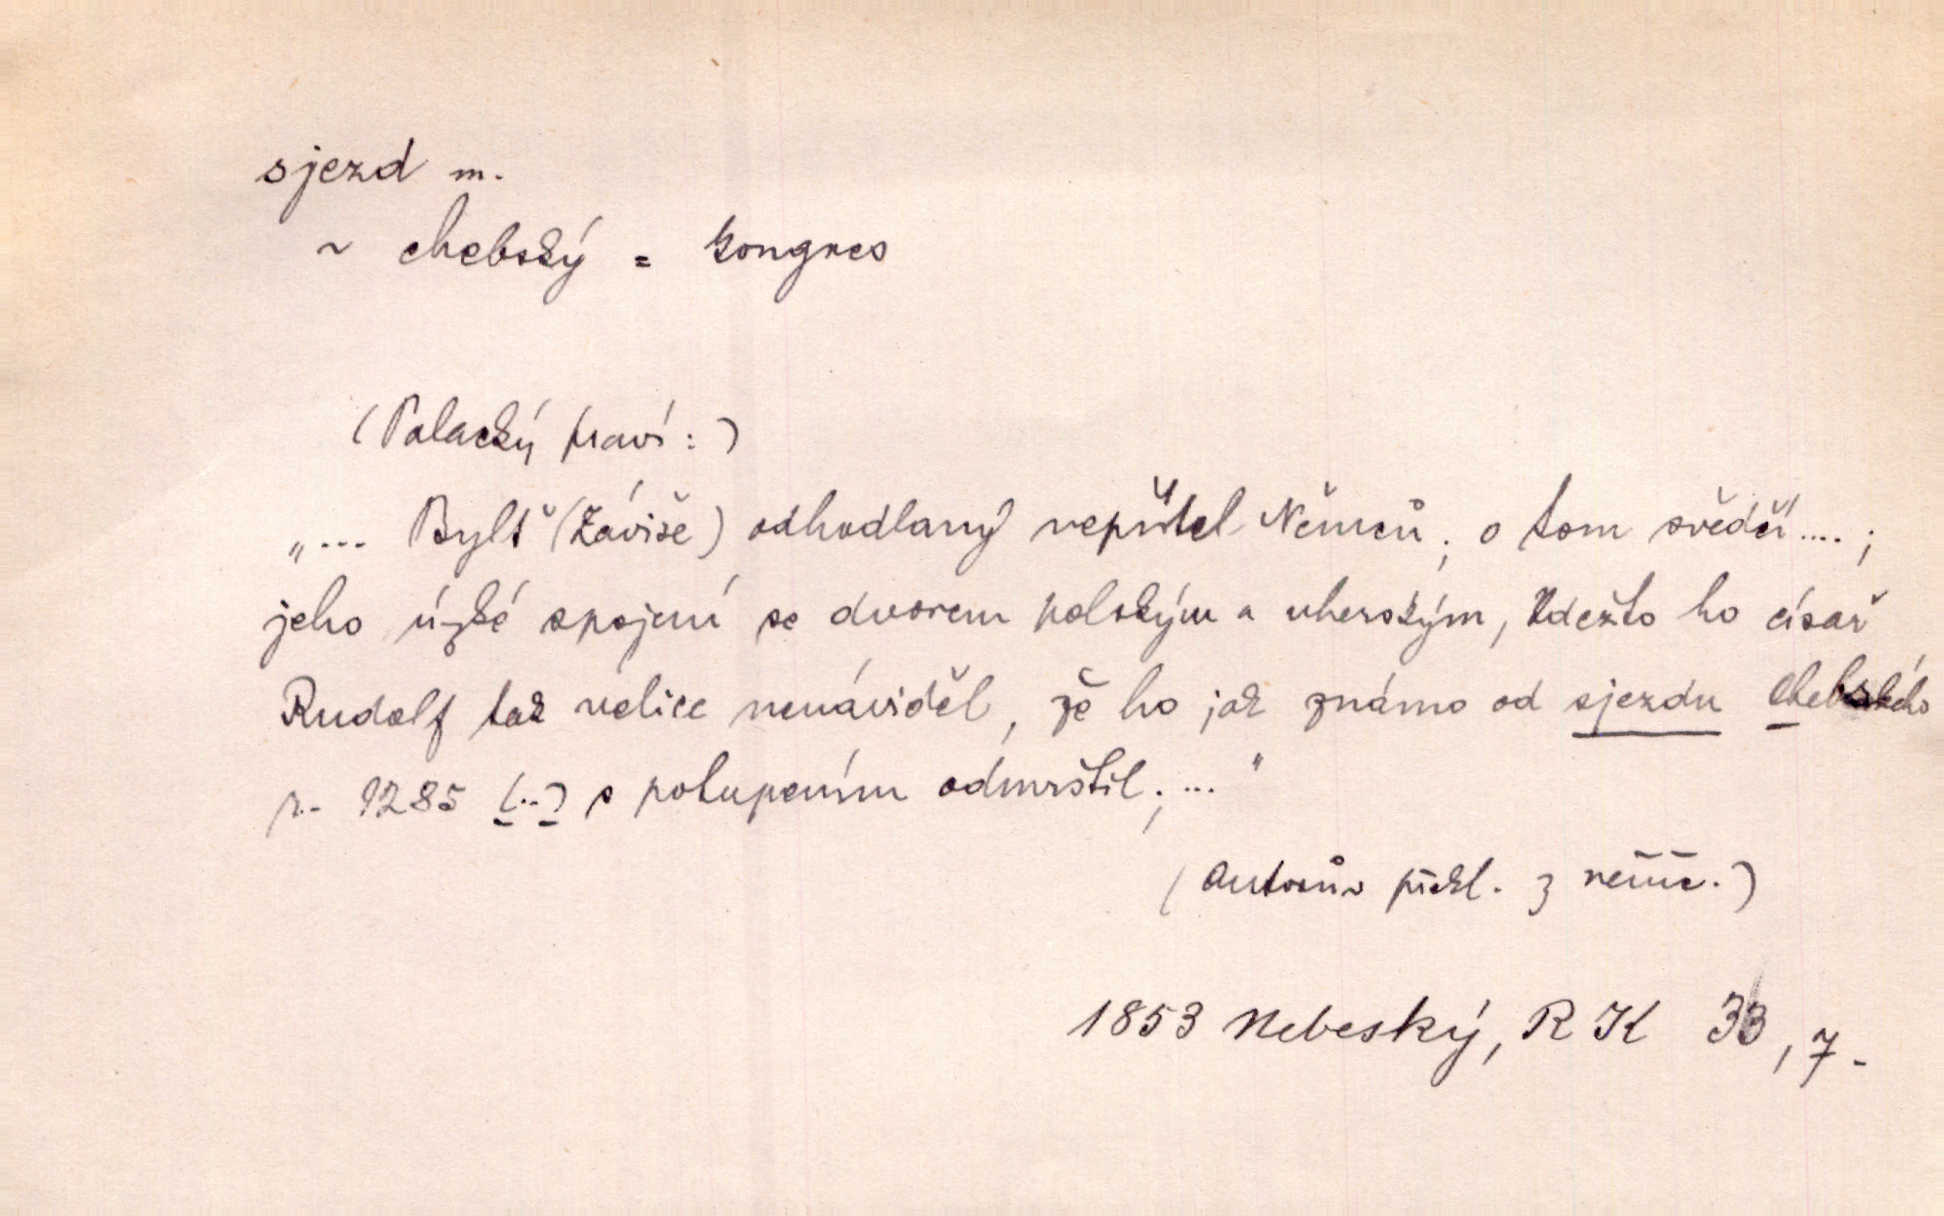 sjezd m.
~ chebský = kongres
(Palacký praví:)
„... Bylť (Záviše) odhodlaný nepřítel Němců; o tom svědčí....;
jeho úzké spojení se dvorem polským a uherským, kdežto ho císař
Rudolf tak velice nenáviděl, že ho jak známo od sjezdu Chebského
r. 1285 (..) s potupením odmrštil; ..."
(autorův překl. z němč.)
1853 Nebeský, RK 33, 7.